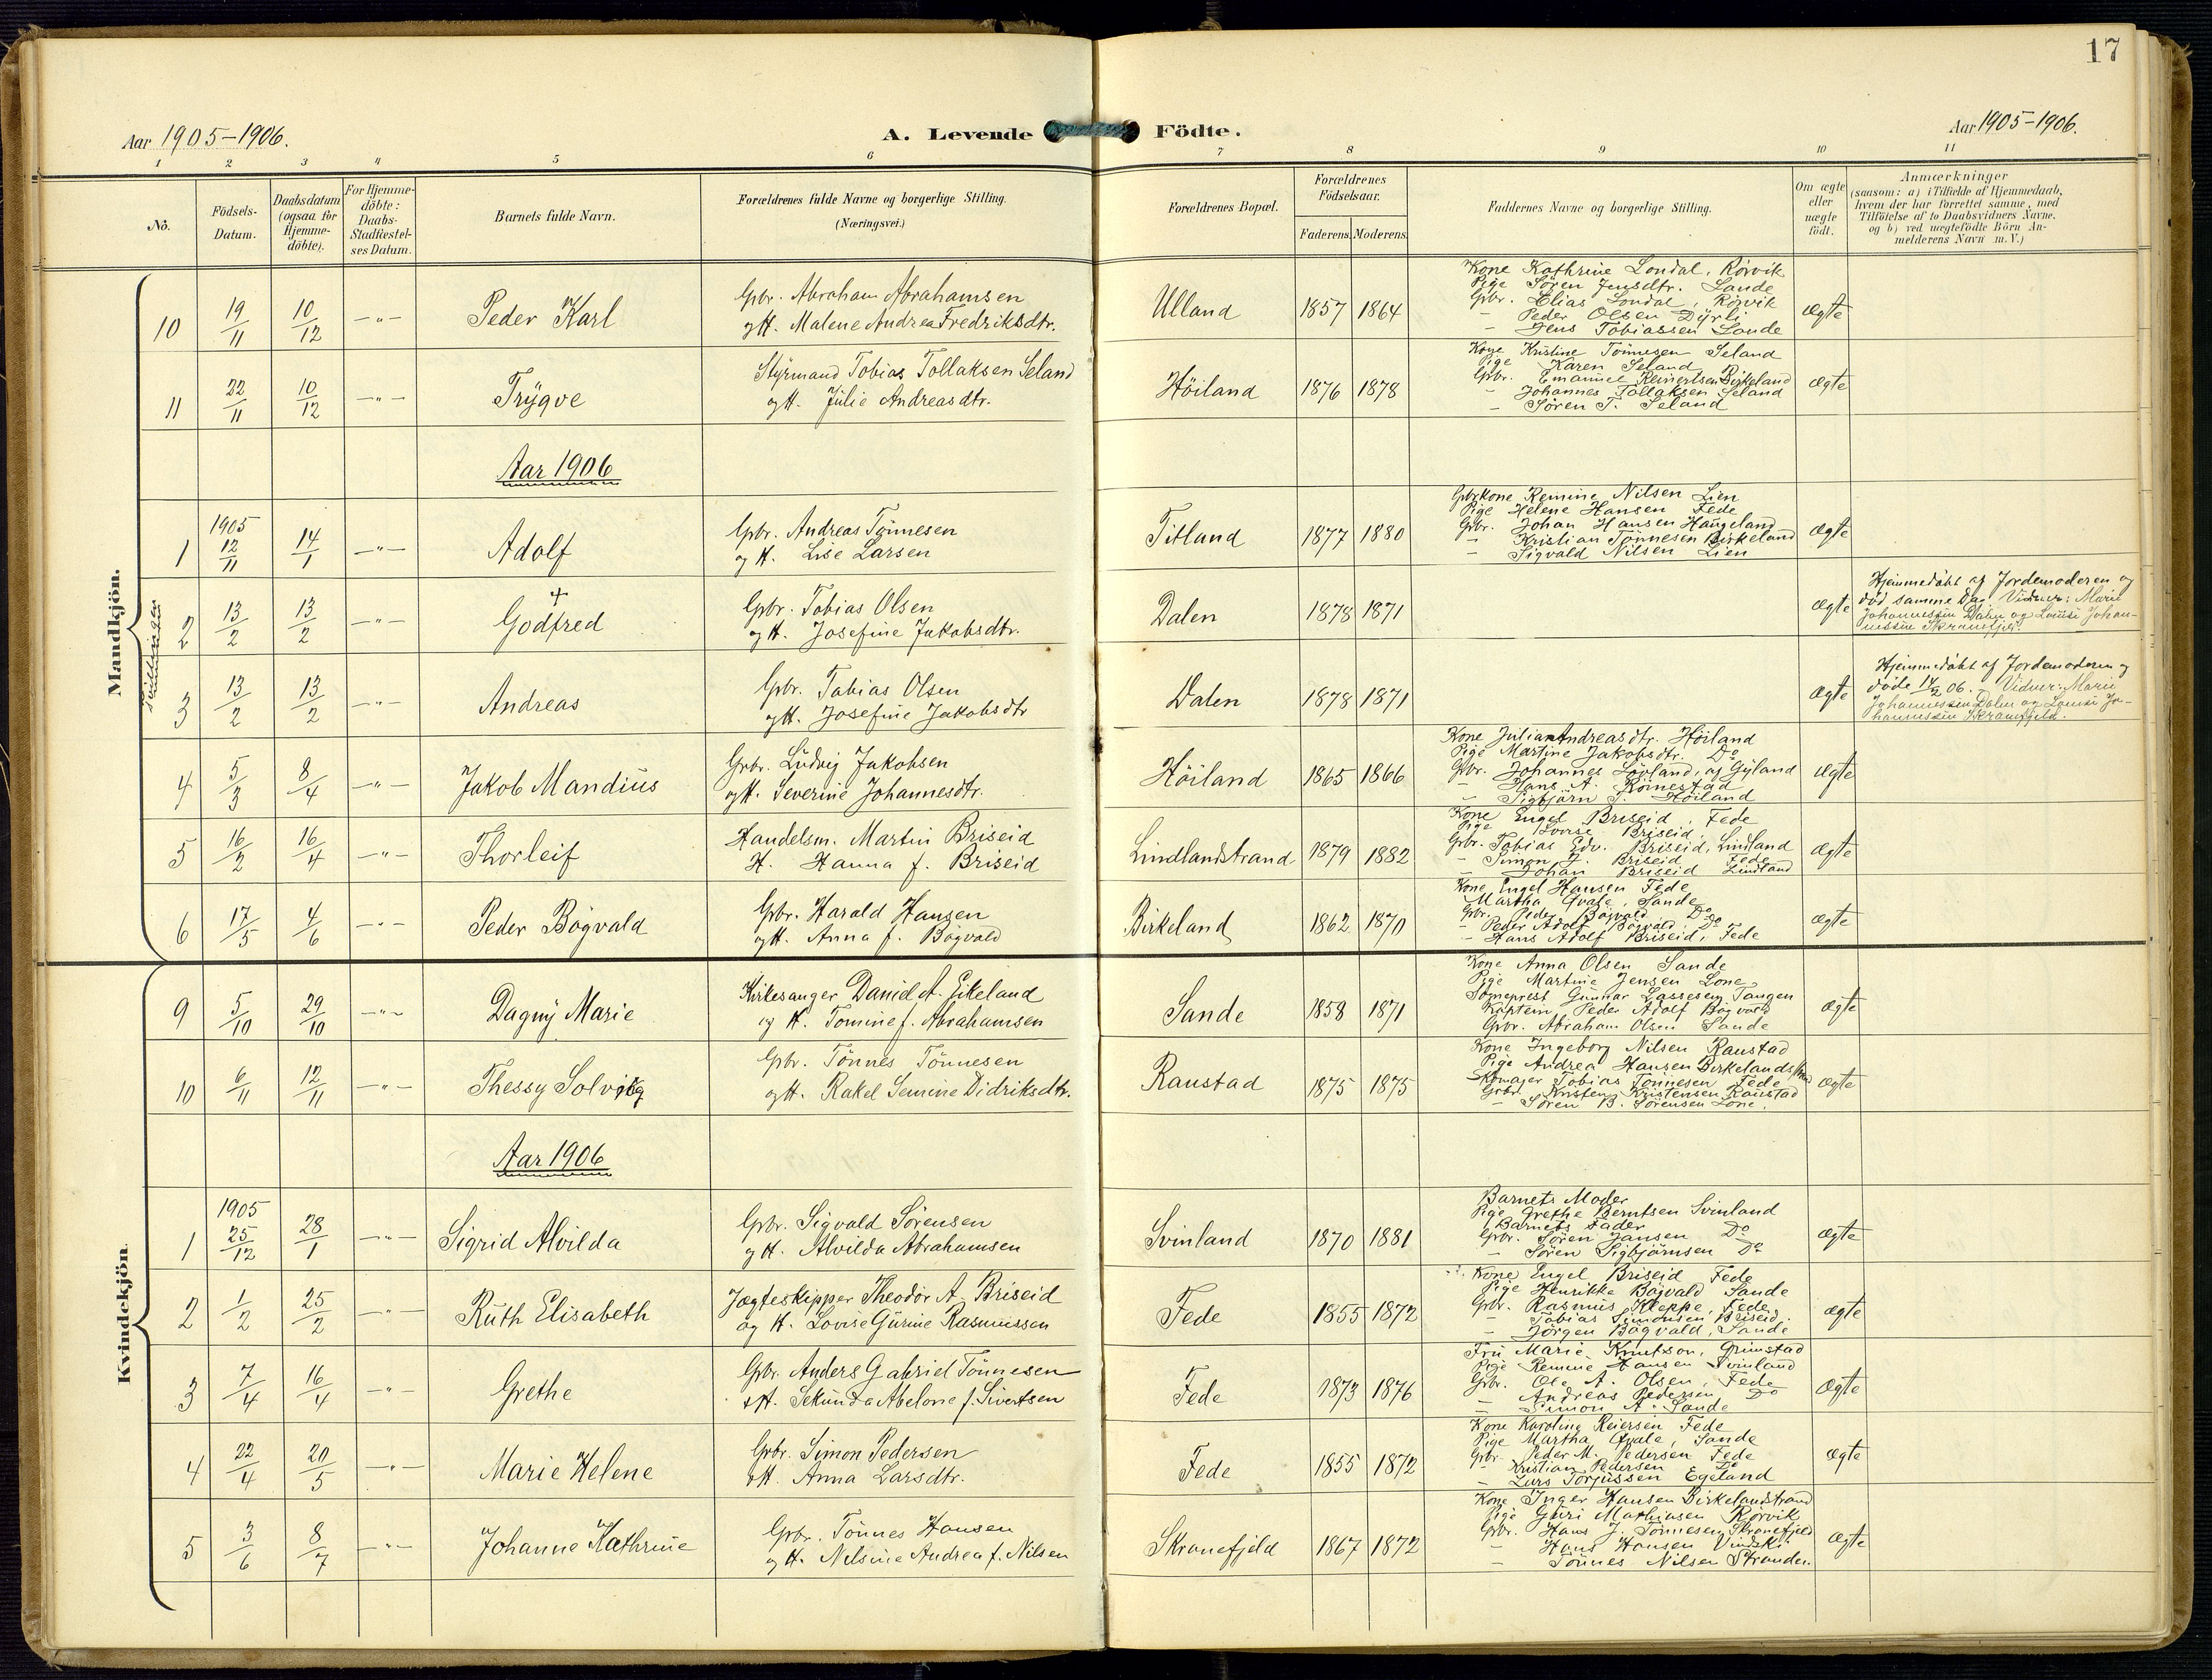 17
Aar 1905-1906.
A. Levende Födte.
Aar 1905-1906.
1 2 3 4 5 6 7 8 9 10 11
No.
Födsels-Datum.
Daabsdatum (ogsaa for Hjemme-döbte).
For Hjemme-döbte: Daabs-Stadfæstel-ses Datum.
Barnets fulde Navn.
Forældrenes fulde Navne og borgerlige Stilling.
(Næringsvei.)
Forældrenes Bopæl.
Forældrenes Födselsaar.
Faderens. Moderens.
Faddernes Navne og borgerlige Stilling.
Om ægte eller uægte födt.
Anmærkninger
(saasom: a) i Tilfælde af Hjemmedaab,
hvem der har forrettet samme, med
Tilföielse af to Daabsvidners Navne.
og b) ved uægtefödte Börn An-
melderens Navn m. V.)
Mandkjön.
10 19/11 10/12 -"- Peder Karl
Gbr. Abraham Abrahamsen
og H. Malene Andrea Fredriksdtr.
Ulland 1857 1864
Kone Kathrine Londal, Rörvik
Pige Sören Jensdtr. Sande
Gbr. Elias Londal, Rörvik
- Peder Olsen Dyrli
- Jens Tobiassen Sande
Ægte
11 22/11 10/12 -"- Trygve
Styrmand Tobias Tollaksen Seland
og H. Julie Andreasdtr.
Höiland 1876 1878
Kone Kristine Tönnesen Seland
Pige Karen Seland
Gbr. Emanuel Reinertsen Birkeland
- Johannes Tollaksen Seland
- Sören T. Seland
Ægte
Aar 1906
1 1905 12/11 14/1 -"- Adolf
Gbr. Andreas Tönnesen
og H. Lise Larsen
Titland 1877 1880
Gbrkone Remine Nilsen Lien
Pige Helene Hansen Fede
Gbr. Johan Hansen Haugeland
- Kristian Tönnesen Birkeland
- Sigvald Nilsen Lien
Ægte
2 13/2 13/2 -"- Godfred
Gbr. Tobias Olsen
og H. Josefine Jakobsdtr.
Dalen 1878 1871
Ægte
Hjemmedöbt af Jordemoderen og
död samme Dag. Vidner: Marie
Johannessen Dalen og Louise Johan-
nessen Skranefjeld.
3 13/2 13/2 -"- Andreas
Gbr. Tobias Olsen
og H. Josefine Jakobsdtr
Dalen 1878 1871
Ægte
Hjemmedöbt af Jordemoderen og
döde 14/2 06. Vidner: Marie
Johannessen Dalen og Louise Jo-
hannessen Skranefjeld.
4 5/3 8/4 -"- Jakob Mandius
Gbr. Ludvig Jakobsen
og H. Severine Johannesdtr.
Höiland 1865 1866
Kone Julia Andreasdtr. Höiland
Pige Martine Jakobsdtr. Do
Gbr. Johannes Lövland, og Gyland
- Hans A. Römestad
- Sigbjörn J. Höiland
Ægte
5 16/2 16/4 -"- Thorleif
Handelsm. Martin Briseid
H. Hanna f. Briseid
Lindlandstrand 1879 1882
Kone Engel Briseid, Fede
Pige Lovise Briseid,
Gbr. Tobias Edv. Briseid, Lindland
- Simon J. Briseid Fede
- Johan Briseid Lindland
Ægte
6 17/5 4/6 -"- Peder Bögvald
Gbr. Harald Hansen
og H. Anna f. Bögvald
Birkeland 1862 1870
Kone Engel Hansen Fede
Martha Qvale, Sande
Gbr. Peder Bögvald Do
- Peder Adolf Bögvald, Do
- Hans Adolf Briseid, Fede
Ægte
Kvindekjön.
9 5/10 29/10 -"- Dagny Marie
Kirkesanger Daniel A. Eikeland
og H. Tomine f. Abrahamsen
Sande 1858 1871
Kone Anna Olsen Sande
Pige Martine Jensen Lone
Sogneprest Gunnar Lassesen Tangen
Kaptein Peder Adolf Bögvald
Gbr. Abraham Olsen Sande
Ægte
10 6/11 12/11 -"- Thessy Solvig
Gbr. Tönnes Tönnesen
og H. Rakel Semine Didriksdtr.
Raustad 1875 1875
Kone Ingeborg Nilsen Raustad
Pige Andrea Hansen Birkelands
Skomager Tobias Tönnesen Fede
Gbr. Kristen Kristensen Raustad
- Sören B. Sörensen Lone.
Ægte
Aar 1906
1 1905 25/12 28/1 -"- Sigrid Alvilda
Gbr. Sigvald Sörensen
og H. Alvilda Abrahamsen
Svinland 1870 1881
Barnets Moder
Pige Grethe Berntsen Svinland
Barnets Fader
Gbr. Sören Jansen Do
- Sören Sigbjörnsen Do
Ægte
2 1/2 25/2 -"- Ruth Elisabeth
Jægteskipper Theodor A. Briseid
og H. Lovise Gurine Rasmussen
Fede 1855 1872
Kone Engel Briseid Fede
Pige Henrikke Bögvald Sande
Gbr. Rasmus Kleppe, Fede
- Tobias Simonsen Briseid.
- Jörgen Bögvald, Sande
Ægte
3 7/4 16/4 -"- Grethe
Gbr. Anders Gabriel Tönnesen
og H. Sekunda Abelone f. Sivertsen
Fede 1873 1876
Fru Marie Knutson, Grimstad
Pige Remine Hansen Svinland
Gbr. Ole A. Olsen, Fede
- Andreas Pedersen, Do
- Simon A. Sande
Ægte
4 22/4 20/5 -"- Marie Helene
Gbr. Simon Pedersen
og H. Anna Larsdtr.
Fede 1855 1872
Kone Karoline Reiersen Fede
Pige Martha Qvale, Sande
Gbr. Peder M. Pedersen Fede
- Kristian Pedersen Do
- Lars Torjussen Egeland
Ægte
5 3/6 8/7 -"- Johanne Kathrine
Gbr. Tönnes Hansen
og H. Nilsine Andrea f. Nilsen
Skranefjeld 1867 1872
Kone Inger Hansen Birkelandstrand
Pige Guri Mathiasen Rörvik
Gbr. Hans J. Tönnesen Skranefjeld
- Hans Hansen Vindski
- Tönnes Nilsen Stranden.
Ægte